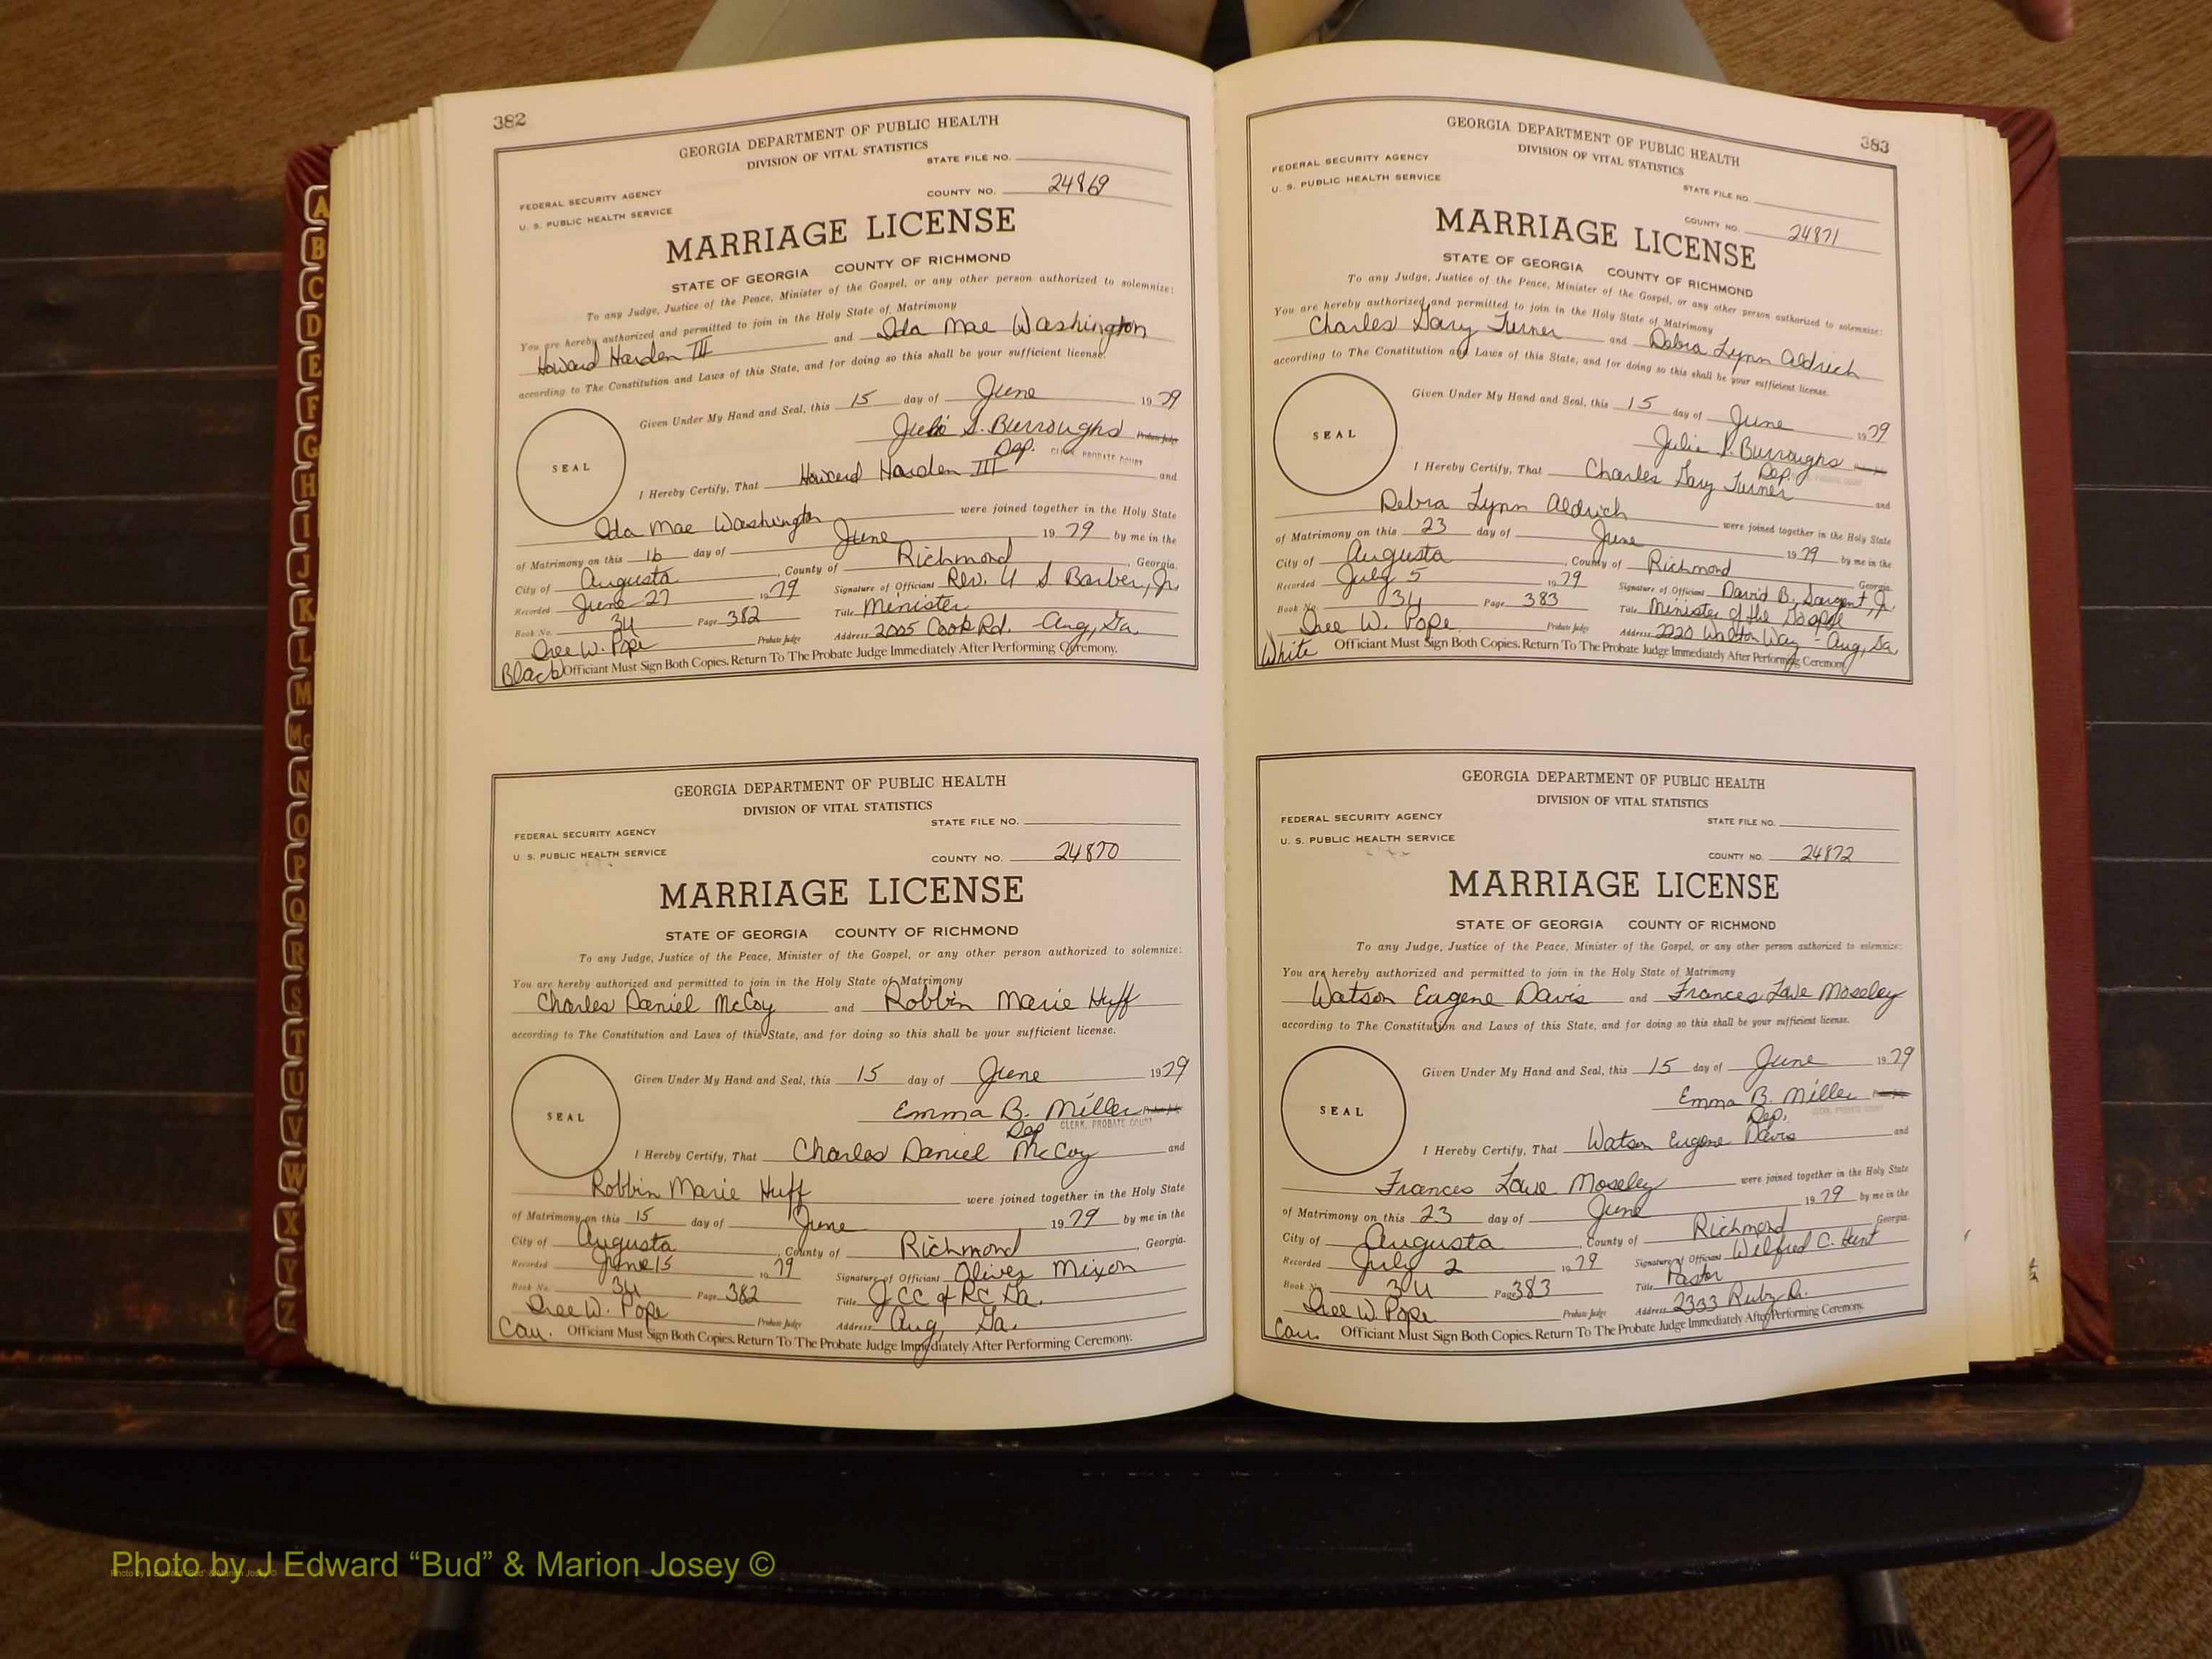 382
GEORGIA DEPARTMENT OF PUBLIC HEALTH
DIVISION OF VITAL STATISTICS
STATE FILE NO.
FEDERAL SECURITY AGENCY
COUNTY NO. 24869
U. S. PUBLIC HEALTH SERVICE
MARRIAGE LICENSE
STATE OF GEORGIA COUNTY OF RICHMOND
To any Judge, Justice of the Peace, Minister of the Gospel, or any other person authorized to solemnize:
You are hereby authorized and permitted to join in the Holy State of Matrimony
Howard Harden III and Ida Mae Washington
according to The Constitution and Laws of this State, and for doing so this shall be your sufficient license.
Given Under My Hand and Seal, this 15 day of June 1979
Julie S. Burroughs Probate Judge
Dep. CLERK, PROBATE COURT
SEAL
I Hereby Certify, That Howard Harden III and
Ida Mae Washington were joined together in the Holy State
of Matrimony on this 16 day of June 1979 by me in the
City of Augusta, County of Richmond, Georgia.
Recorded June 27 1979 Signature of Officiant Rev. U S. Barber, Jr.
Book No. 34 Page 382 Title Minister
W. Pope Probate Judge Address 2005 Cook Rd. Aug, Ga.
Black Officiant Must Sign Both Copies. Return To The Probate Judge Immediately After Performing Ceremony.
GEORGIA DEPARTMENT OF PUBLIC HEALTH
DIVISION OF VITAL STATISTICS
STATE FILE NO.
FEDERAL SECURITY AGENCY
U. S. PUBLIC HEALTH SERVICE
COUNTY NO. 24870
MARRIAGE LICENSE
STATE OF GEORGIA COUNTY OF RICHMOND
To any Judge, Justice of the Peace, Minister of the Gospel, or any other person authorized to solemnize:
You are hereby authorized and permitted to join in the Holy State of Matrimony
Charles Daniel McCoy and Robbin Marie Huff
according to The Constitution and Laws of this State, and for doing so this shall be your sufficient license.
Given Under My Hand and Seal, this 15 day of June 1979
Emma B. Miller Probate Judge
Dep CLERK, PROBATE COURT
SEAL
I Hereby Certify, That Charles Daniel McCoy and
Robbin Marie Huff were joined together in the Holy State
of Matrimony on this 15 day of June 1979 by me in the
City of Augusta, County of Richmond, Georgia.
Recorded June 15 1979 Signature of Officiant Oliver Mixon
Book No. 34 Page 382 Title JCC of RC Ga.
W. Pope Probate Judge Address Aug, Ga.
Cau. Officiant Must Sign Both Copies. Return To The Probate Judge Immediately After Performing Ceremony.
383
GEORGIA DEPARTMENT OF PUBLIC HEALTH
DIVISION OF VITAL STATISTICS
FEDERAL SECURITY AGENCY
U. S. PUBLIC HEALTH SERVICE
STATE FILE NO.
COUNTY NO. 24871
MARRIAGE LICENSE
STATE OF GEORGIA COUNTY OF RICHMOND
To any Judge, Justice of the Peace, Minister of the Gospel, or any other person authorized to solemnize:
You are hereby authorized and permitted to join in the Holy State of Matrimony
Charles Gary Turner and Debra Lynn Aldrich
according to The Constitution and Laws of this State, and for doing so this shall be your sufficient license.
Given Under My Hand and Seal, this 15 day of June 1979
Julie S. Burroughs
Dep. PROBATE COURT
SEAL
I Hereby Certify, That Charles Gary Turner and
Debra Lynn Aldrich were joined together in the Holy State
of Matrimony on this 23 day of June 1979 by me in the
City of Augusta, County of Richmond Georgia.
Recorded July 5 1979 Signature of Officiant David B. Sargent, Jr.
Book No. 34 Page 383 Title Minister of the Gospel
W. Pope Probate Judge Address 2220 Walton Way - Aug, Ga
White Officiant Must Sign Both Copies. Return To The Probate Judge Immediately After Performing Ceremony
GEORGIA DEPARTMENT OF PUBLIC HEALTH
DIVISION OF VITAL STATISTICS
FEDERAL SECURITY AGENCY
STATE FILE NO.
U. S. PUBLIC HEALTH SERVICE
COUNTY NO. 24872
MARRIAGE LICENSE
STATE OF GEORGIA COUNTY OF RICHMOND
To any Judge, Justice of the Peace, Minister of the Gospel, or any other person authorized to solemnize:
You are hereby authorized and permitted to join in the Holy State of Matrimony
Watson Eugene Davis and Frances Lowe Moseley
according to The Constitution and Laws of this State, and for doing so this shall be your sufficient license.
Given Under My Hand and Seal, this 15 day of June 1979
Emma B. Miller
Dep. CLERK, PROBATE COURT
SEAL
I Hereby Certify, That Watson Eugene Davis and
Frances Lowe Moseley were joined together in the Holy State
of Matrimony on this 23 day of June 1979 by me in the
City of Augusta, County of Richmond Georgia.
Recorded July 2 1979 Signature of Officiant Wilfred C. Hunt
Book No. 34 Page 383 Title Pastor
W. Pope Probate Judge Address 2333 Ruby Dr.
Cau. Officiant Must Sign Both Copies. Return To The Probate Judge Immediately After Performing Ceremony.
A
B
C
D
E
F
G
H
I
J
K
L
M
Mc
N
O
P
Q
R
S
T
U
V
W
X
Y
Z
Photo by J Edward “Bud” & Marion Josey ©